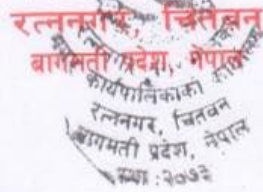 रत्ननगर, चितवन
बागमती प्रदेश, नेपाल
कार्यपालिकाको
रत्ननगर, चितवन
बागमती प्रदेश, नेपाल
स्थापना : २०७३